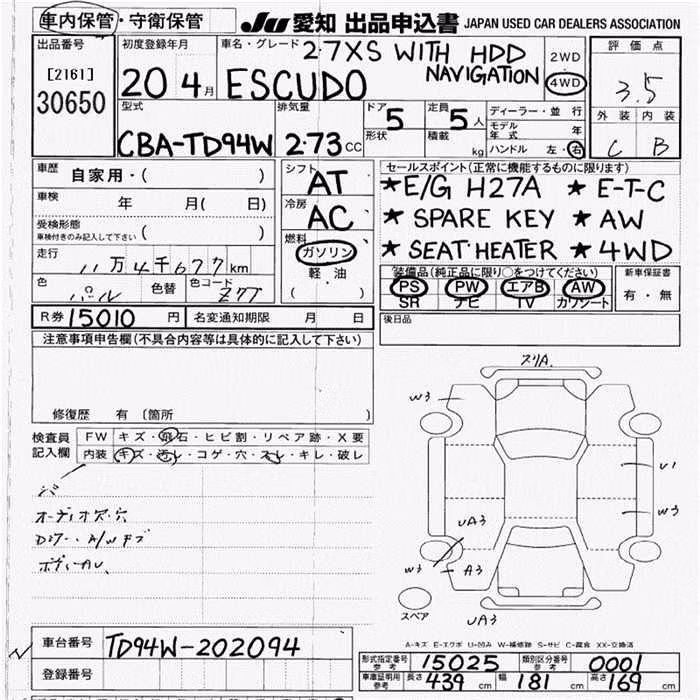 車内保管・守衛保管
JU 愛知 出品申込書 JAPAN USED CAR DEALERS ASSOCIATION
出品番号 初度登録年月 車名・グレード 2.7XS WITH HDD NAVIGATION 2WD・4WD 評価点
[2161]
30650 20 4月 ESCUDO 3.5
型式 排気量 ドア 5 定員 5人 ディーラー・並行 外装 内装
CBA-TD94W 2.73 CC 形状 積載 kg モデル年式 年
ハンドル 左・右 C B
車歴 自家用・( ) シフト AT セールスポイント(正常に機能するものに限ります)
★E/G H27A ★E-T-C
車検 年 月( 日) 冷房 AC ★SPARE KEY ★AW
受検形態 車検付きのみ記入して下さい ( ) 燃料 ガソリン ★SEAT HEATER ★4WD
走行 11万4千677km 軽油 ( )
色 パール 色替 色コード Z7T
装備品(純正品に限り○をつけてください) 新車保証書
PS PW エアB AW 有・無
SR ナビ TV カワシート
R券 15010円 名変通知期限 月 日 後日品
注意事項申告欄(不具合内容等は具体的に記入して下さい)
修復歴 有(箇所 )
検査員記入欄 FW キズ・飛石・ヒビ割・リペア跡・X要
内装 キズ・汚レ・コゲ・穴・スレ・キレ・破レ
オーディオ穴・穴
スリA.
W3
U1
W3
UA3
W3
A3
UA3
スペア
A-キズ E-エクボ U-凹み W-補修跡 S-サビ C-腐食 XX-交換済
車台番号 TD94W-202094
登録番号
形式指定番号 参考 15025 類別区分番号 参考 0001
車庫証明用 参考 長さ 439cm 幅 181cm 高さ 169cm